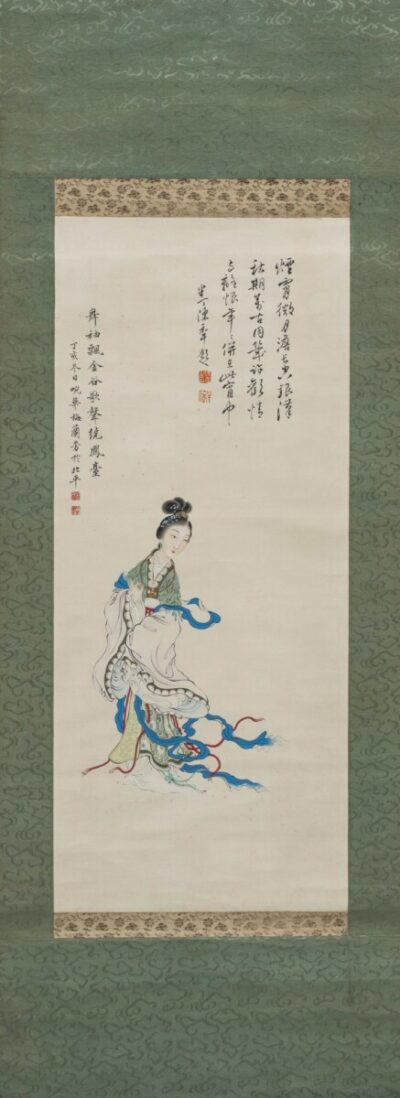 煙霄微月澹長空銀漢
秋期萬古同幾許歡情
与離恨年々併在此宵中
半丁陳年題
舞袖飄金谷歌聲繞鳳臺
丁亥冬日畹華梅蘭芳於北平